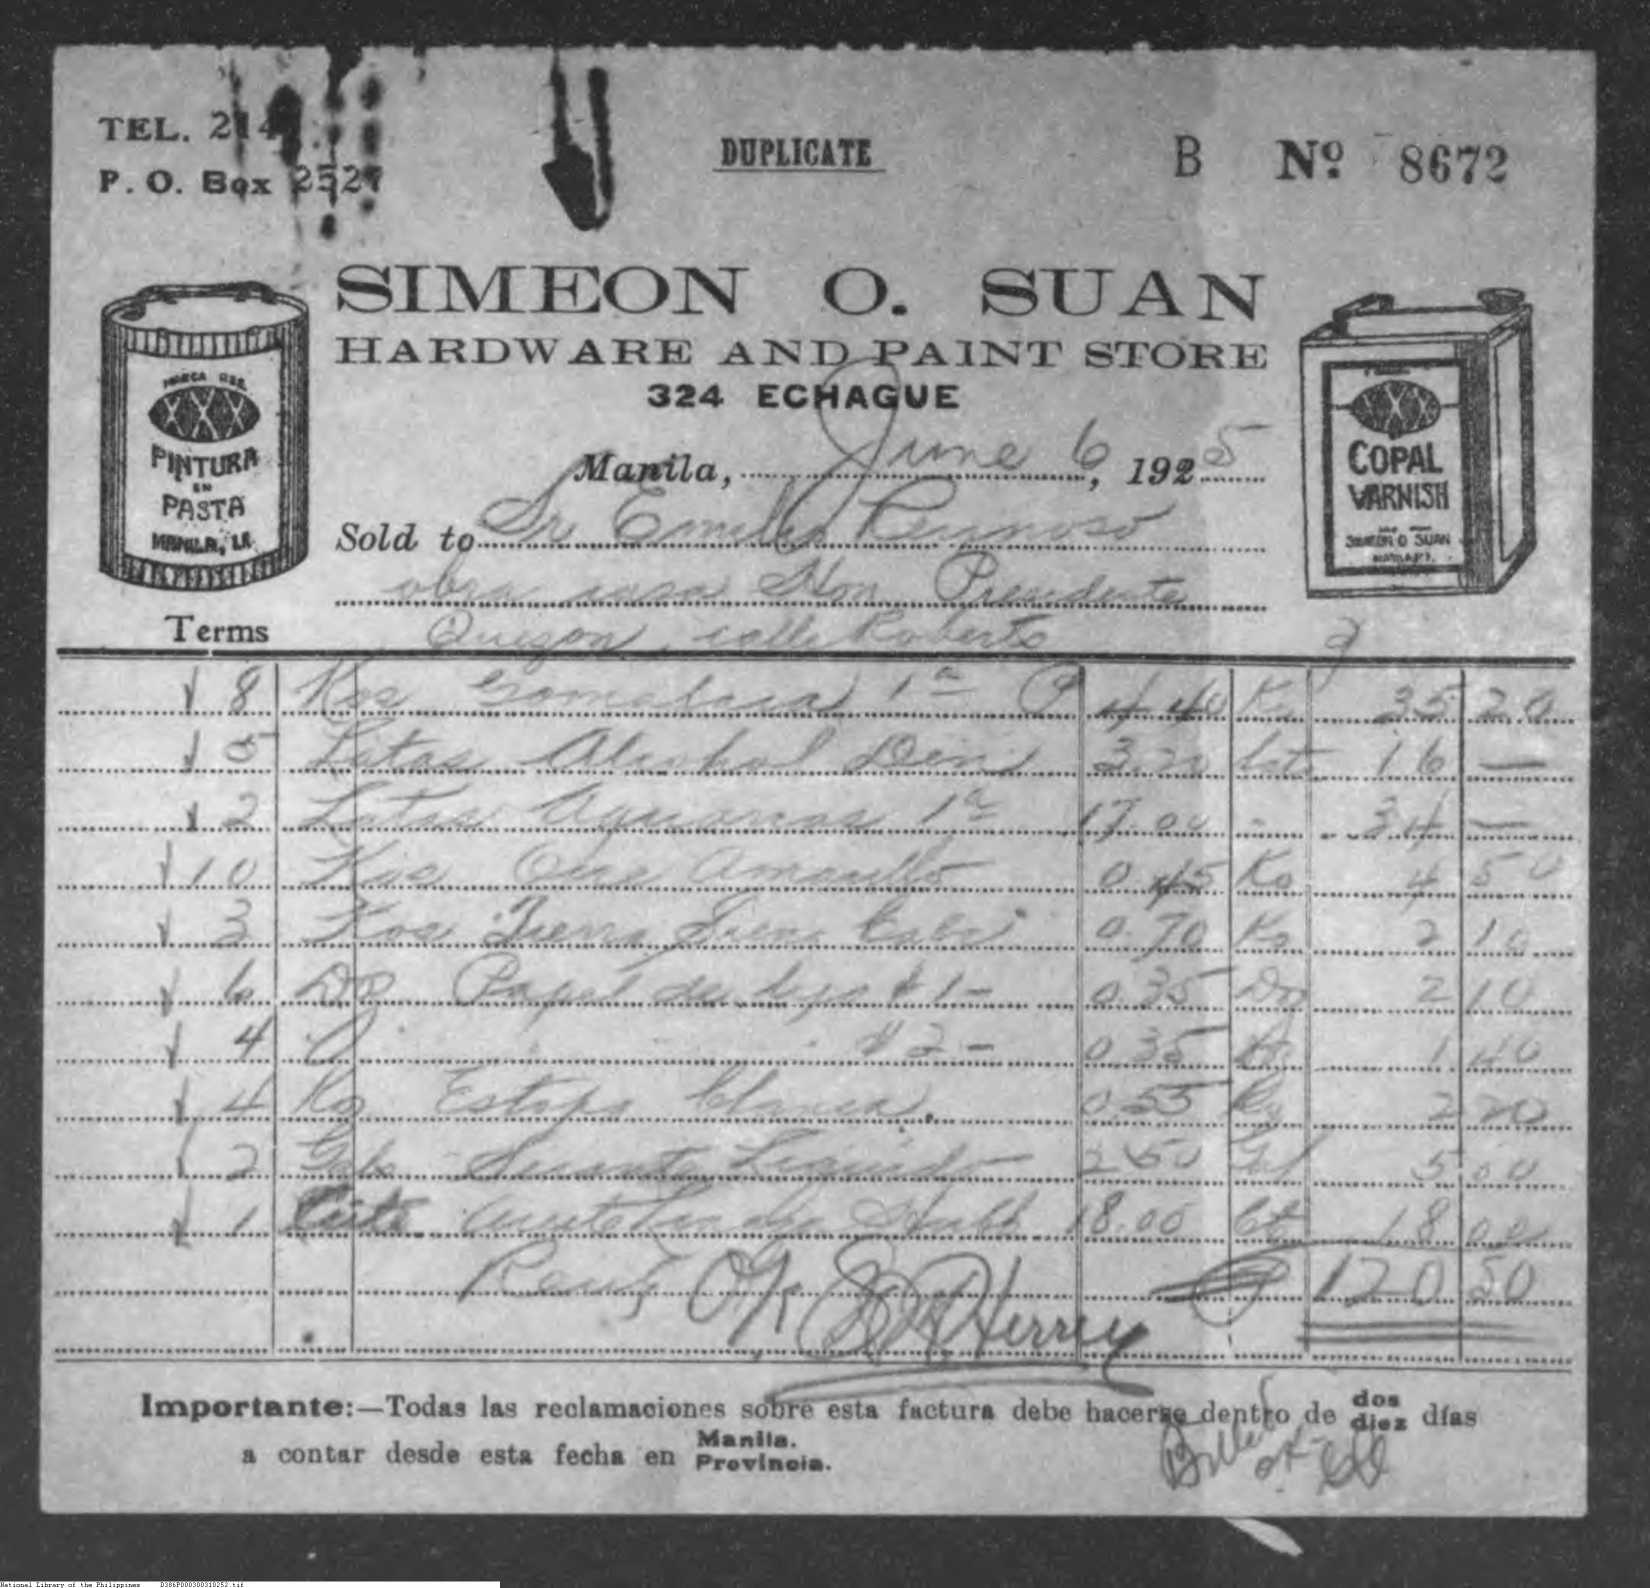 TEL. 214
P. O. Box 2527
DUPLICATE
B No. 8672
SIMEON O. SUAN
HARDWARE AND PAINT STORE
324 ECHAGUE
MARCA REG.
XXX
PINTURA
EN
PASTA
MANILA, I.F.
XXX
COPAL
VARNISH
SIMEON O SUAN
MANILA, P.I.
Manila, June 6, 1925
Sold to Sr Emilio Reynoso
obra casa Hon. Presidente
Terms Quezon, calle Roberts
8 Kos Gomalaca 1a ₱ 4.40 Ko 35 20
5 Latas Alcohol Den 3.20 lata 16 —
2 Latas Aguarras 1a 17.00 " 34 —
10 Kos Ocre Amarillo 0.45 Ko 4 50
3 Kos Tierra Siena 0.70 Ko 2 10
6 Dz Papel de lija # 1- 0.35 Dz 2 10
4 " # 2- 0.35 Dz 1 40
4 Ko Estopa blanca. 0.55 Ko 2 20
2 Gals Secante Liquido 2.50 Gal 5 00
1 18.00 18 00
O/K ₱ 120 50
Importante:—Todas las reclamaciones sobre esta factura debe hacerse dentro de dos diez días
a contar desde esta fecha en Manila. Provincia.
Billed
OK
National Library of the Philippines D386P000300310252.tif